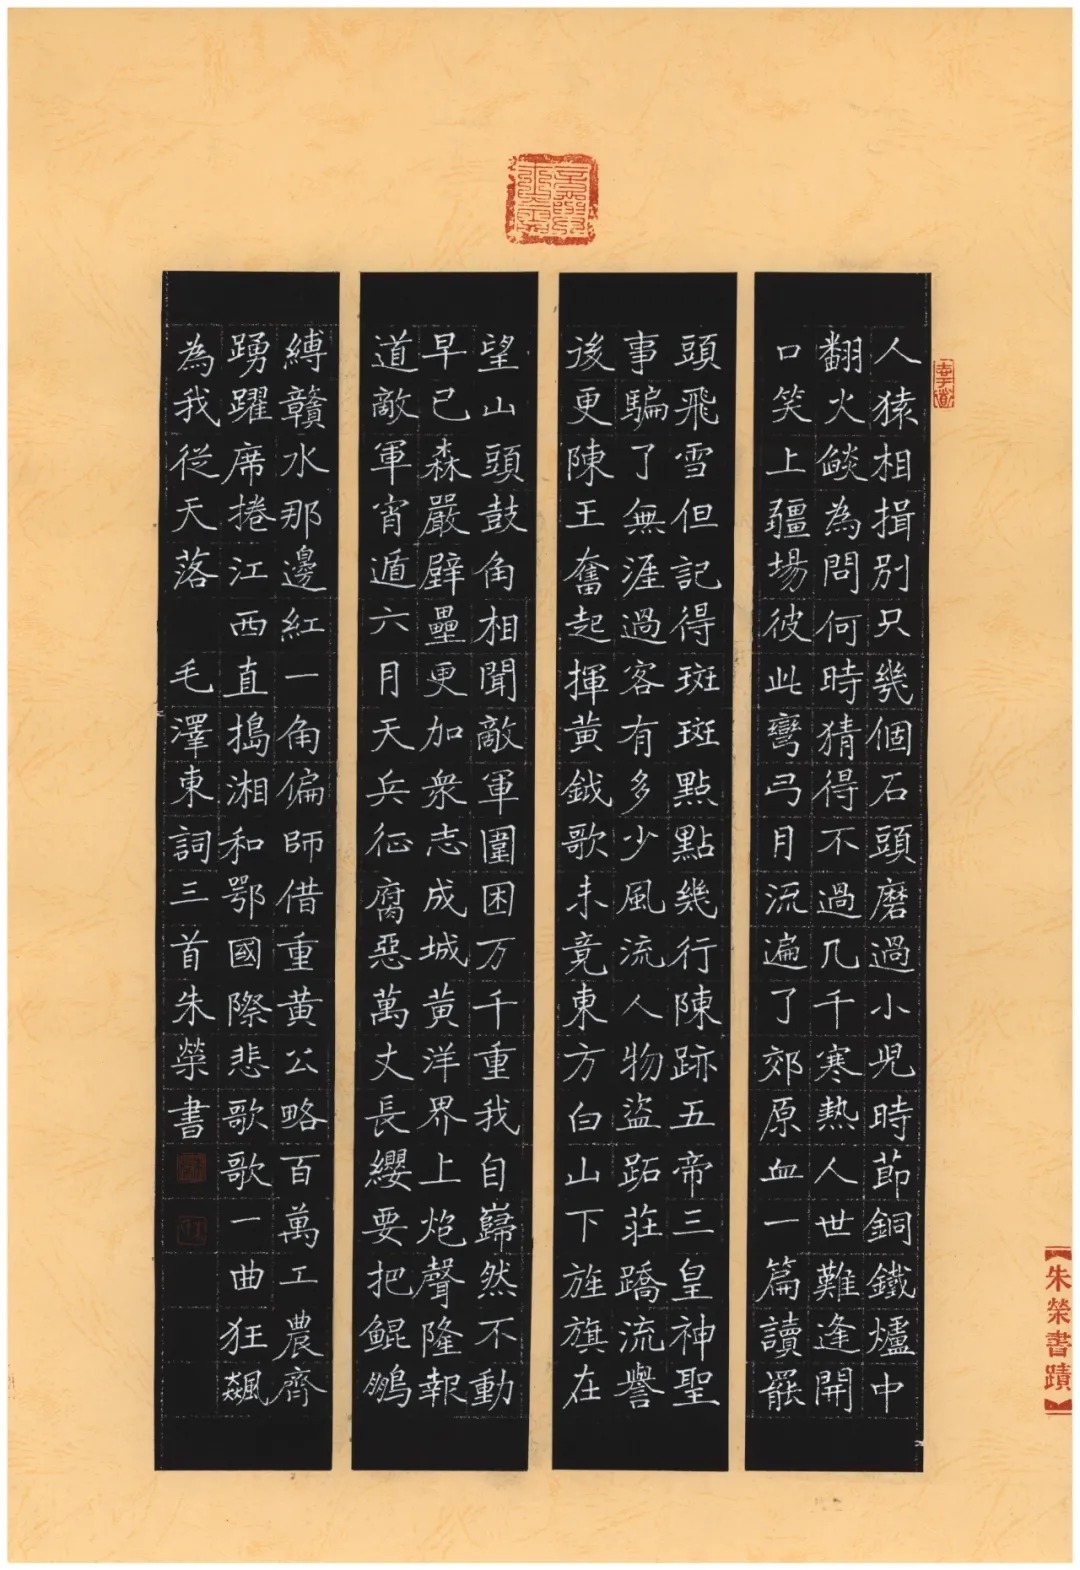 人猿相揖別只幾個石頭磨過小兒時節銅鐵爐中
翻火燄為問何時猜得不過几千寒熱人世難逢開
口笑上疆場彼此彎弓月流遍了郊原血一篇讀罷
頭飛雪但記得斑斑點點幾行陳跡五帝三皇神聖
事騙了無涯過客有多少風流人物盜跖莊蹻流譽
後更陳王奮起揮黃鉞歌未竟東方白山下旌旗在
望山頭鼓角相聞敵軍圍困万千重我自巋然不動
早已森嚴壁壘更加衆志成城黃洋界上炮聲隆報
道敵軍宵遁六月天兵征腐惡萬丈長纓要把鯤鵬
縛贛水那邊紅一角偏師借重黃公略百萬工農齊
踴躍席捲江西直搗湘和鄂國際悲歌歌一曲狂飆
為我從天落 毛澤東詞三首朱榮書
【朱榮書蹟】